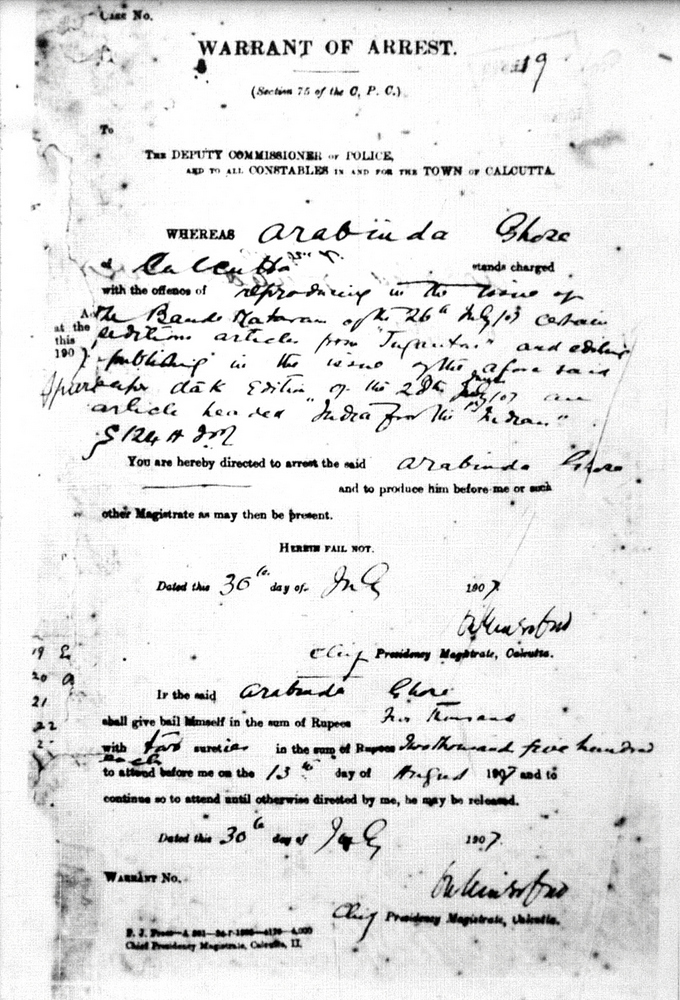 Case No.
WARRANT OF ARREST.
19
(Section 75 of the C. P. C.)
To
THE DEPUTY COMMISSIONER OF POLICE,
AND TO ALL CONSTABLES IN AND FOR THE TOWN OF CALCUTTA.
WHEREAS Arabinda Ghose
of Calcutta stands charged
with the offence of reproducing in the issue of
the Bande Mataram of the 26th July/07 certain
seditious articles from "Jugantar" and
at the
this
190
publishing in the issue of the afore said
paper dak Edition of the 28th /07 an
article headed "India for the Indian"
S 124 A
You are hereby directed to arrest the said Arabinda Ghose
and to produce him before me or such
other Magistrate as may then be present.
HEREIN FAIL NOT.
Dated this 30th day of July 1907.
Chief Presidency Magistrate, Calcutta.
19
20
21
22
2
If the said Arabinda Ghose
shall give bail himself in the sum of Rupees Thousand
with two sureties in the sum of Rupees Two thousand five hundred
each
to attend before me on the 13th day of August 1907 and to
continue so to attend until otherwise directed by me, he may be released.
Dated this 30th day of July 1907.
WARRANT No.
Chief Presidency Magistrate, Calcutta.
Chief Presidency Magistrate, Calcutta, II.